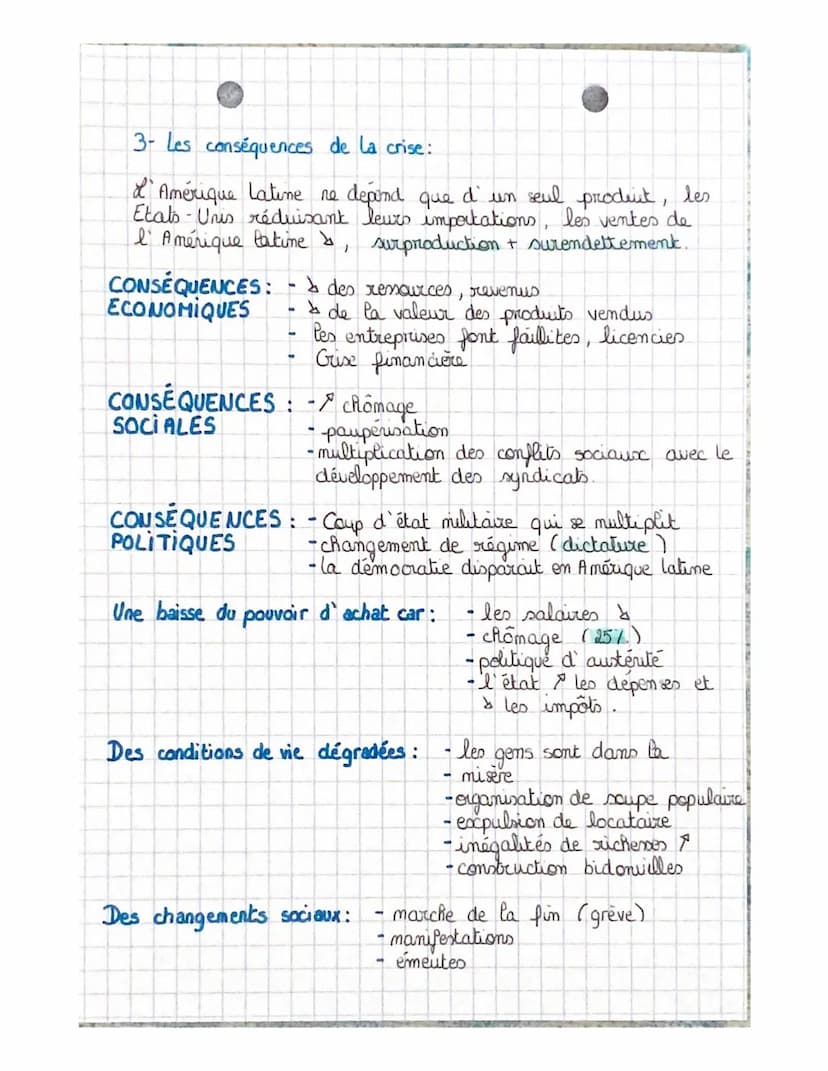 3- Les conséquences de la crise:
L'Amérique Latine ne dépend que d'un seul produit, les
Etats-Unis réduisant leurs importations, les ventes de
l'Amérique Latine ↘, surproduction + surendettement.
CONSÉQUENCES : - ↘ des ressources, revenus
ECONOMIQUES - ↘ de la valeur des produits vendus
- les entreprises font faillites, licencies
- Crise financière
CONSÉQUENCES : - ↗ chômage
SOCIALES - paupérisation
- multiplication des conflits sociaux avec le
développement des syndicats.
CONSÉQUENCES : - Coup d'état militaire qui se multiplit
POLITIQUES - changement de régime (dictature)
- la démocratie disparait en Amérique latine
Une baisse du pouvoir d'achat car : - les salaires ↘
- chômage (25%)
- politique d'austérité
- l'état ↗ les dépenses et
↘ les impôts.
Des conditions de vie dégradées : - les gens sont dans la
- misère
- organisation de soupe populaire
- expulsion de locataire
- inégalités de richesses ↗
- construction bidonvilles
Des changements sociaux : - marche de la fin (grève)
- manifestations
- émeutes